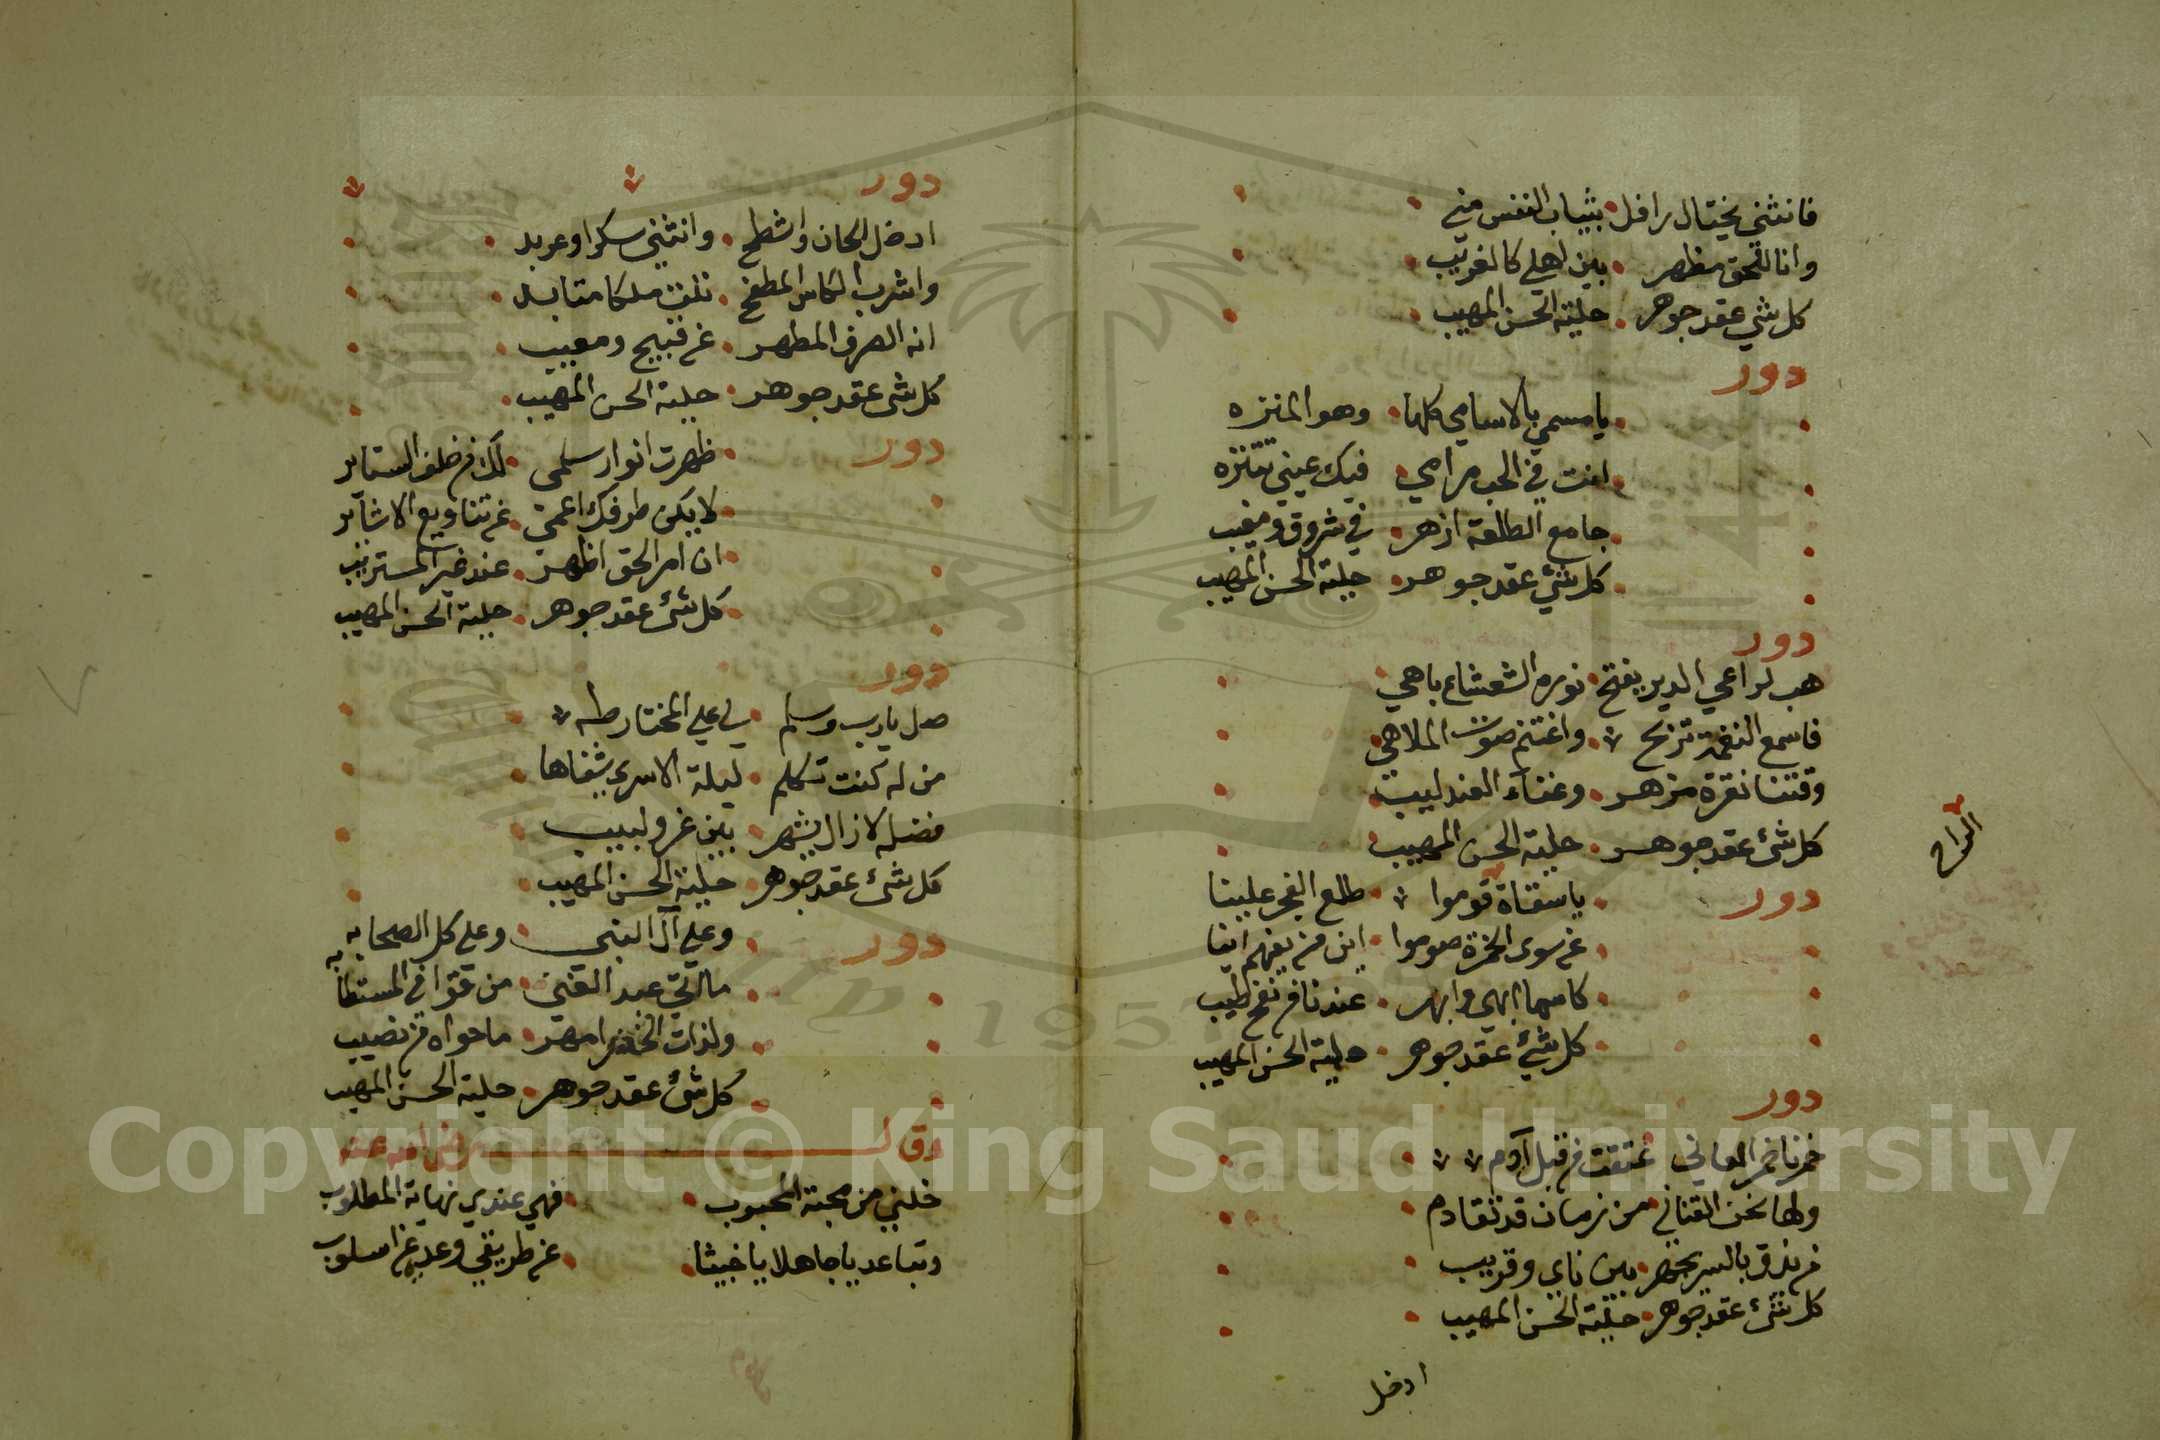 فانثنى يختال رافل بثياب النفس مني
وانا للحق مظهر بين اهلي كالغريب
كل شي عقد جوهر حلية الحسن المهيب
دور
يا مسمى بالاسامي كلها وهو المنزه
انت في الحب مرامي فيك عيني تتنزه
جامع الطلعة ازهر في شروق ومغيب
كل شيء عقد جوهر حلية الحسن المهيب
دور
هب لراعي الدير يفتح نوره الشعشاع باهي
فاسمع النغمة تربح واغتنم صوت الملاهي
وقتنا نقرة مزهر وغناء العندليب
كل شئ عقد جوهر حلية الحسن المهيب
دور
يا سقاة قوموا طلع الفجر علينا
عن سوى الخمرة صوموا اين من يفهم اينا
كاسها ابهى وابهر عندنا من نفح طيب
كل شيء عقد جوهر حلية الحسن المهيب
الراح
دور
خمرنا خمر المعاني عتقت من قبل آدم
ولها نحن القناني من زمان قد تقادم
من يذق بالسر يجهر بين ناي وقريب
كل شئ عقد جوهر حلية الحسن المهيب
ادخل
دور
ادخل الحان واشطح وانثني سكرا وعربد
واشرب الكاس المطفح تلق ملكا متابد
انه الصرف المطهر عن قبيح ومعيب
كل شى عقد جوهر حلية الحسن المهيب
دور
ظهرت انوار سلمى لك من خلف الستاير
لا يكن طرفك اعمى عن تناويع الاشآير
ان امر الحق اظهر عند غير المستريب
كل شئ عقد جوهر حلية الحسن المهيب
دور
صل يا رب وسلم لي على المختار طه
من له كنت تكلم ليلة الاسرى شفاها
فضله لا زال يشهر بين غر ولبيب
كل شئ عقد جوهر حلية الحسن المهيب
دور
وعلى آل النبى وعلى كل الصحابه
ما اتى عبد الغني من قوافي المستطابه
ولذات الخدر امهر ما حواه من نصيب
كل شئ عقد جوهر حلية الحسن المهيب
وقال رضي الله عنه
خلني من محبة المحبوب فهي عندي نهاية المطلوب
وتباعد يا جاهلا يا خبيثا عن طريقي وعد عن اسلوب
Copyright © King Saud University
1957